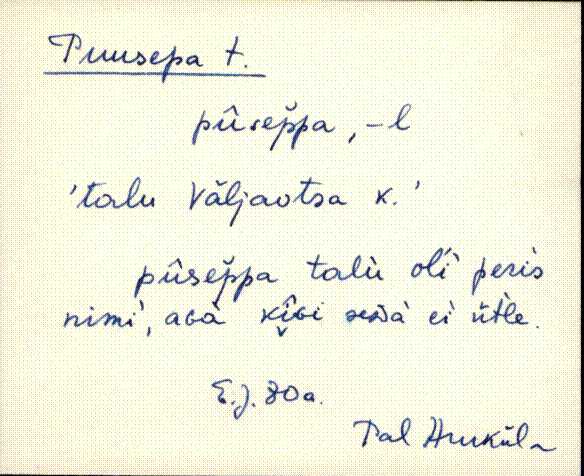 Puusepa t.
pûsep̌pa, -l
'talu Väljaotsa k.'
pûsep̌pa talù olʹì peris
nimì, acà kîvi sedà ei ütle.
E.J. 80a.
Pal